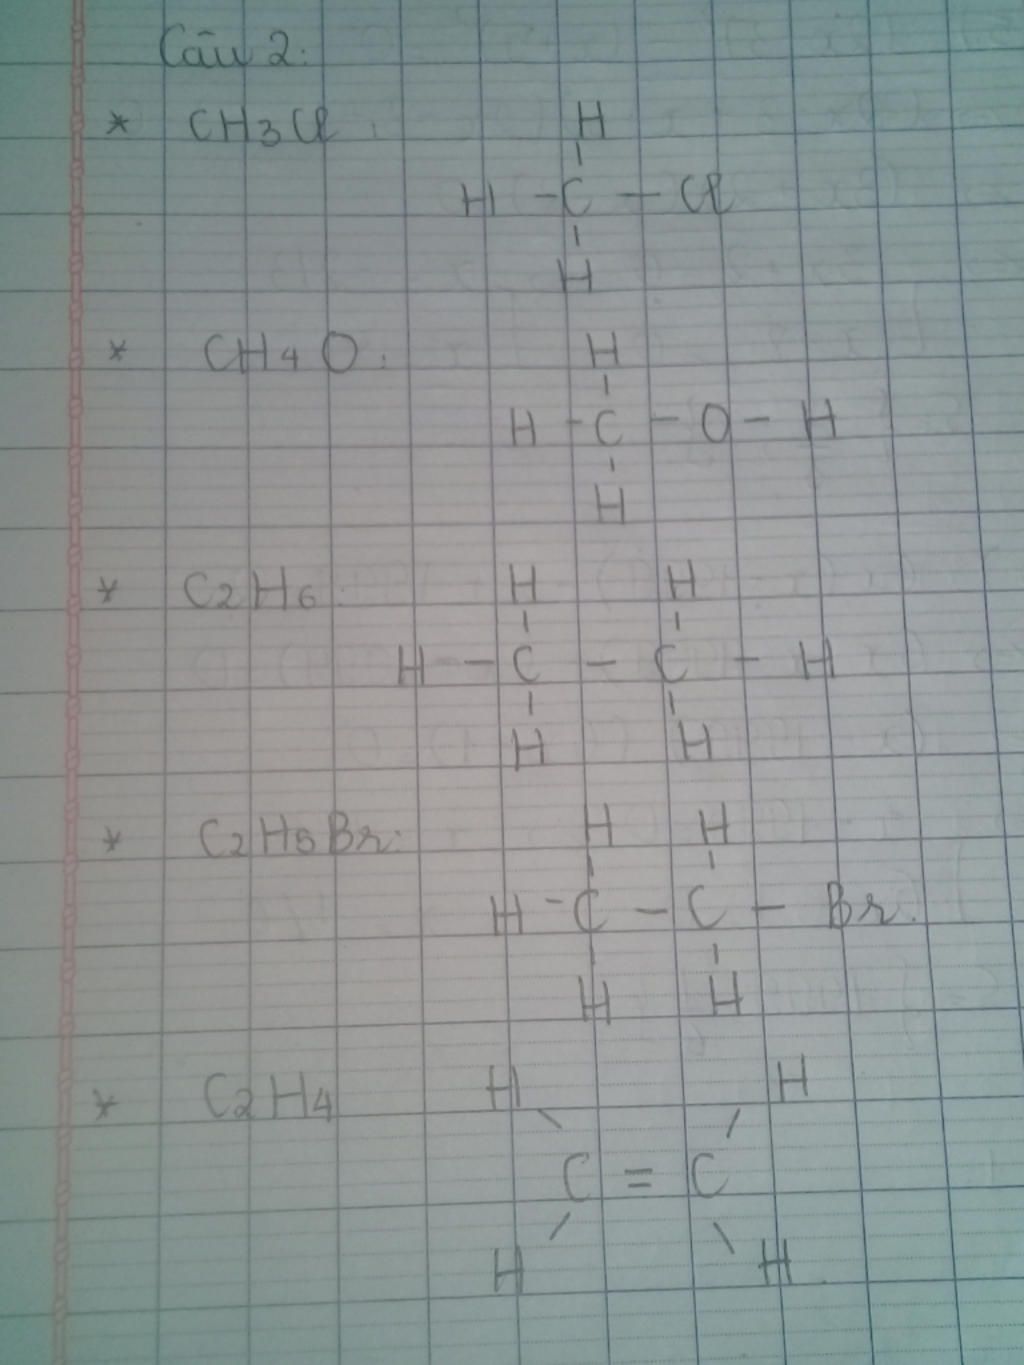 Câu 2:
* CH3Cl:
H
H - C - Cl
H
* CH4O:
H
H - C - O - H
H
* C2H6:
H H
H - C - C - H
H H
* C2H5Br:
H H
H - C - C - Br.
H H
* C2H4
H H
C = C
H H